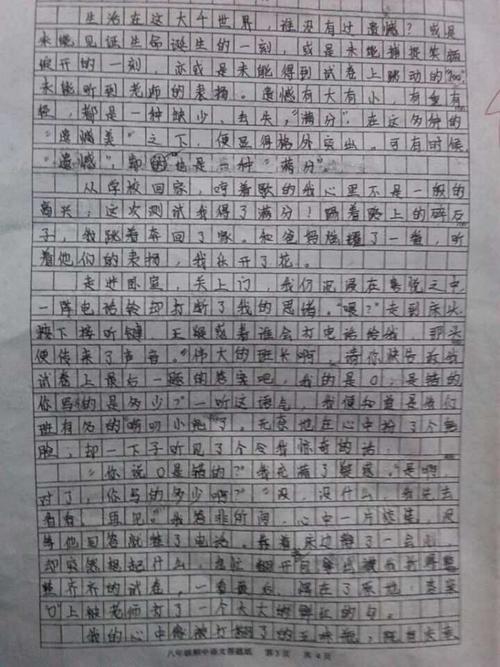 生活在这大千世界，谁没有过遗憾？或是
未能见证生命诞生的一刻，或是未能捕捉笑颜
绽开的一刻，亦或是未能得到试卷上跳动的“100”，
未能听到老师的表扬。遗憾有大有小，有重有
轻，都是一种缺少、丢失，“满分”，在这多种的
“遗憾美”之下，便显得格外突出。可有时候，
“遗憾”，却也是一种“满分”。
从学校回家，哼着歌的我心里不是一般的
高兴：这次测试我得了满分！踢着路上的碎石
子，我跳着奔回了家。和爸妈炫耀了一番，听
着他们的表扬，我乐开了花。
走进卧室，关上门，我仍沉浸在喜悦之中，
一阵电话铃却打断了我的思绪。“喂？”走到床头，
按下接听键，正疑惑着谁会打电话给我，那头
便传来了声音。“伟大的班长啊，请你快告诉我
试卷上最后一题的答案吧，我的是0，是错的，
你写的是多少？”一听这语气，我便知道是我们
班有名的小 了。无奈地在心中扮了个鬼
脸，却一下子听见了个令我惊奇的话：
“你说0是错的？”我充满了疑惑。“是啊，
对了，你写的多少啊？”“没，没什么，我先去
看看，再见。”我答非所问，心中一片慌乱，没
等他回答就挂了电话。在床边静了一会儿，
却突然想起什么，翻开
整齐齐的试卷，一看最后，愣在了原地：答案
“0”上被老师打了一个大大的鲜红的勾。
我的心中像被打翻了的五味瓶，
八年级期中语文答题纸 第3页 共4页